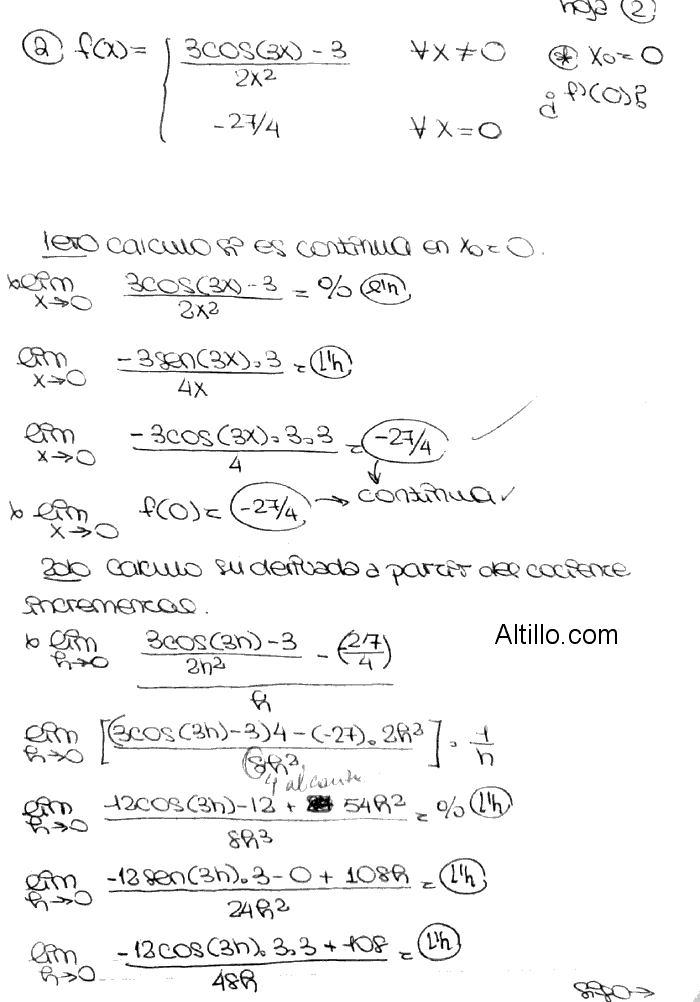 hoja ②
② f(x) = { (3cos(3x) - 3)/(2x²) ∀x ≠ 0 ⊛ x₀ = 0
-27/4 ∀x = 0 ¿f'(0)?
1ero calculo si es continua en x₀ = 0.
lim x→0 (3cos(3x) - 3)/(2x²) = 0/0 (L'h)
lim x→0 (-3sen(3x).3)/(4x) = (L'h)
lim x→0 (-3cos(3x).3.3)/4 = (-27/4) ✓
lim x→0 f(0) = (-27/4) → continua ✓
2do calculo su derivada a partir del cociente
incremental.
Altillo.com
lim h→0 ((3cos(3h) - 3)/(2h²) - (27/4))/h
lim h→0 [((3cos(3h) - 3)4 - (-27).2h²)/(8h²)] . 1/h
4 al
lim h→0 (-12cos(3h) - 12 + 54h²)/(8h³) = 0/0 (L'h)
lim h→0 (-12sen(3h).3 - 0 + 108h)/(24h²) = (L'h)
lim h→0 (-12cos(3h).3.3 + 108)/(48h) = (L'h)
sigo →